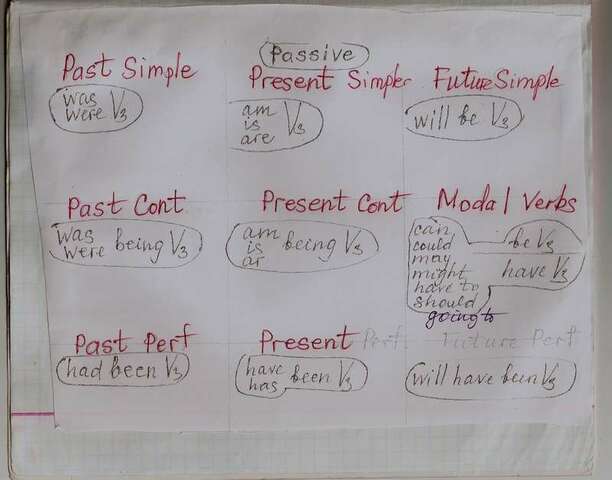 Passive
Past Simple
was
were V3
Present Simper
am
is
are V3
Future Simple
will be V3
Past Cont
was
were being V3
Present Cont
am
is
ar being V3
Modal Verbs
can
could
may
might
have to
should
going to
be V3
have V3
Past Perf
had been V3
Present Perf
have
has been V3
Future Perf
will have been V3